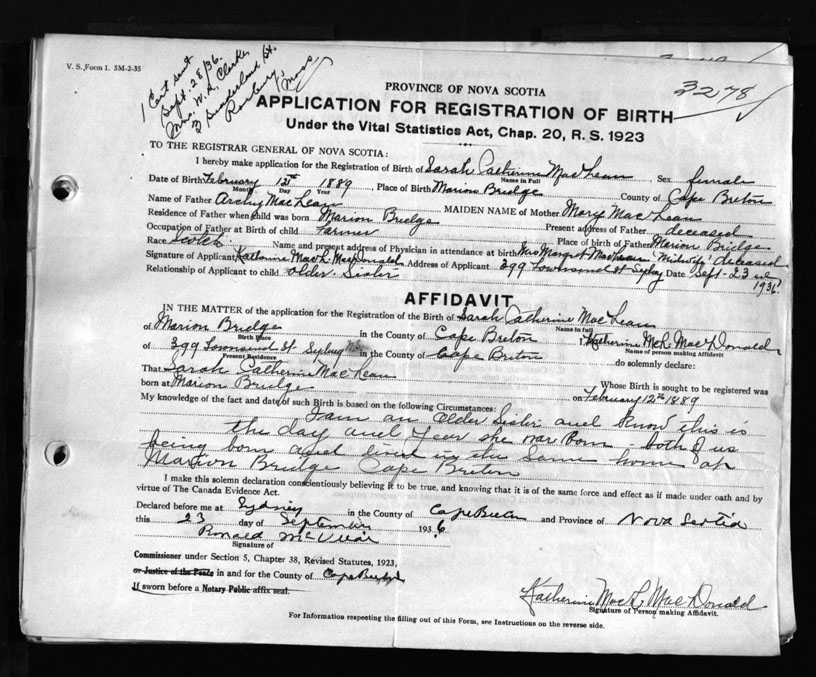 V. S., Form 1. 5M-2-35
1 Cert sent
Sept. 28/36.
Mrs. W. L. Clarke
3 Sunderland St.
Roxbury, Mass
3278
PROVINCE OF NOVA SCOTIA
APPLICATION FOR REGISTRATION OF BIRTH
Under the Vital Statistics Act, Chap. 20, R. S. 1923
TO THE REGISTRAR GENERAL OF NOVA SCOTIA:
I hereby make application for the Registration of Birth of Sarah Catherine MacLean, Sex female
Name in Full
Date of Birth February 12th 1889, Place of Birth Marion Bridge County of Cape Breton
Month Day Year
Name of Father Archy MacLean MAIDEN NAME of Mother Mary MacLean
Residence of Father when child was born Marion Bridge Present address of Father deceased
Occupation of Father at Birth of child farmer Place of birth of Father Marion Bridge
Race Scotch. Name and present address of Physician in attendance at birth Mrs Margret MacLean Midwife deceased
Signature of Applicant Katherine MacL. MacDonald Address of Applicant 399 Townsend St Sydney Date Sept-23rd
1936.
Relationship of Applicant to child older Sister
AFFIDAVIT
IN THE MATTER of the application for the Registration of the Birth of Sarah Catherine MacLean
Name in full
of Marion Bridge in the County of Cape Breton I, Katherine McL. MacDonald
Birth Place
Name of person making Affidavit
of 399 Townsend St Sydney NS in the County of Cape Breton do solemnly declare:
Present Residence
That Sarah Catherine MacLean Whose Birth is sought to be registered was
born at Marion Bridge on February 12th 1889
My knowledge of the fact and date of such Birth is based on the following Circumstances:
I am an Older Sister and know this is
the day and year she was born - both of us
being born and lived in the same home at
Marion Bridge Cape Breton
I make this solemn declaration conscientiously believing it to be true, and knowing that it is of the same force and effect as if made under oath and by
virtue of The Canada Evidence Act.
Declared before me at Sydney in the County of Cape Breton and Province of Nova Scotia
this 23 day of September 1936.
Ronald McVicar
Signature of
Commissioner under Section 5, Chapter 38, Revised Statutes, 1923,
or Justice of the Peace in and for the County of Cape Breton
If sworn before a Notary Public affix seal.
Katherine MacL. MacDonald
Signature of Person making Affidavit.
For Information respecting the filling out of this Form, see Instructions on the reverse side.